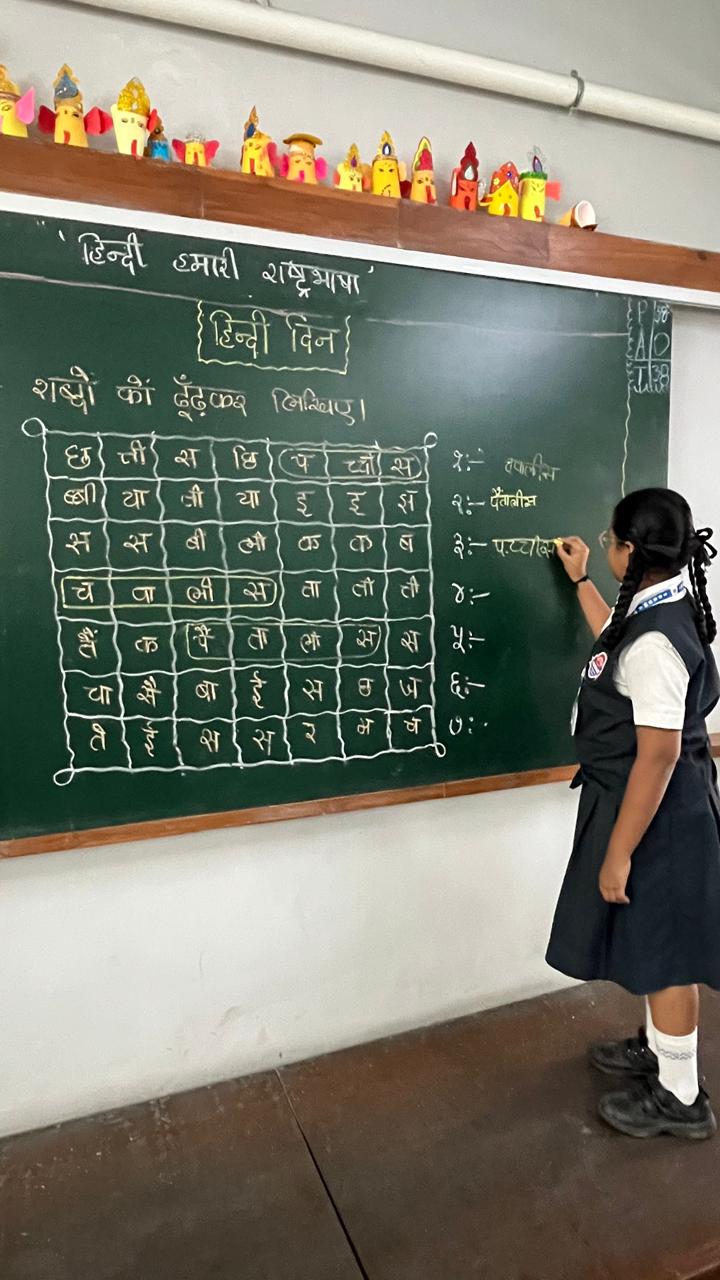 "हिन्दी हमारी राष्ट्रभाषा"
हिन्दी दिन
शब्दों कों ढूँढ़कर लिखिए।
छ त्ती स छि प च्ची स
ब्बी या ली या इ ई झ
स स बी ली क क ब
च वा ली स ता ली ती
तैं क पैं ता ली स स
चा सै बा ई स छ ज
ते ई स स र म ब
१:-
२:- पैंतालीस
३:- पच्चीस
४:-
५:-
६:-
७:-
P 38
A 0
T 38